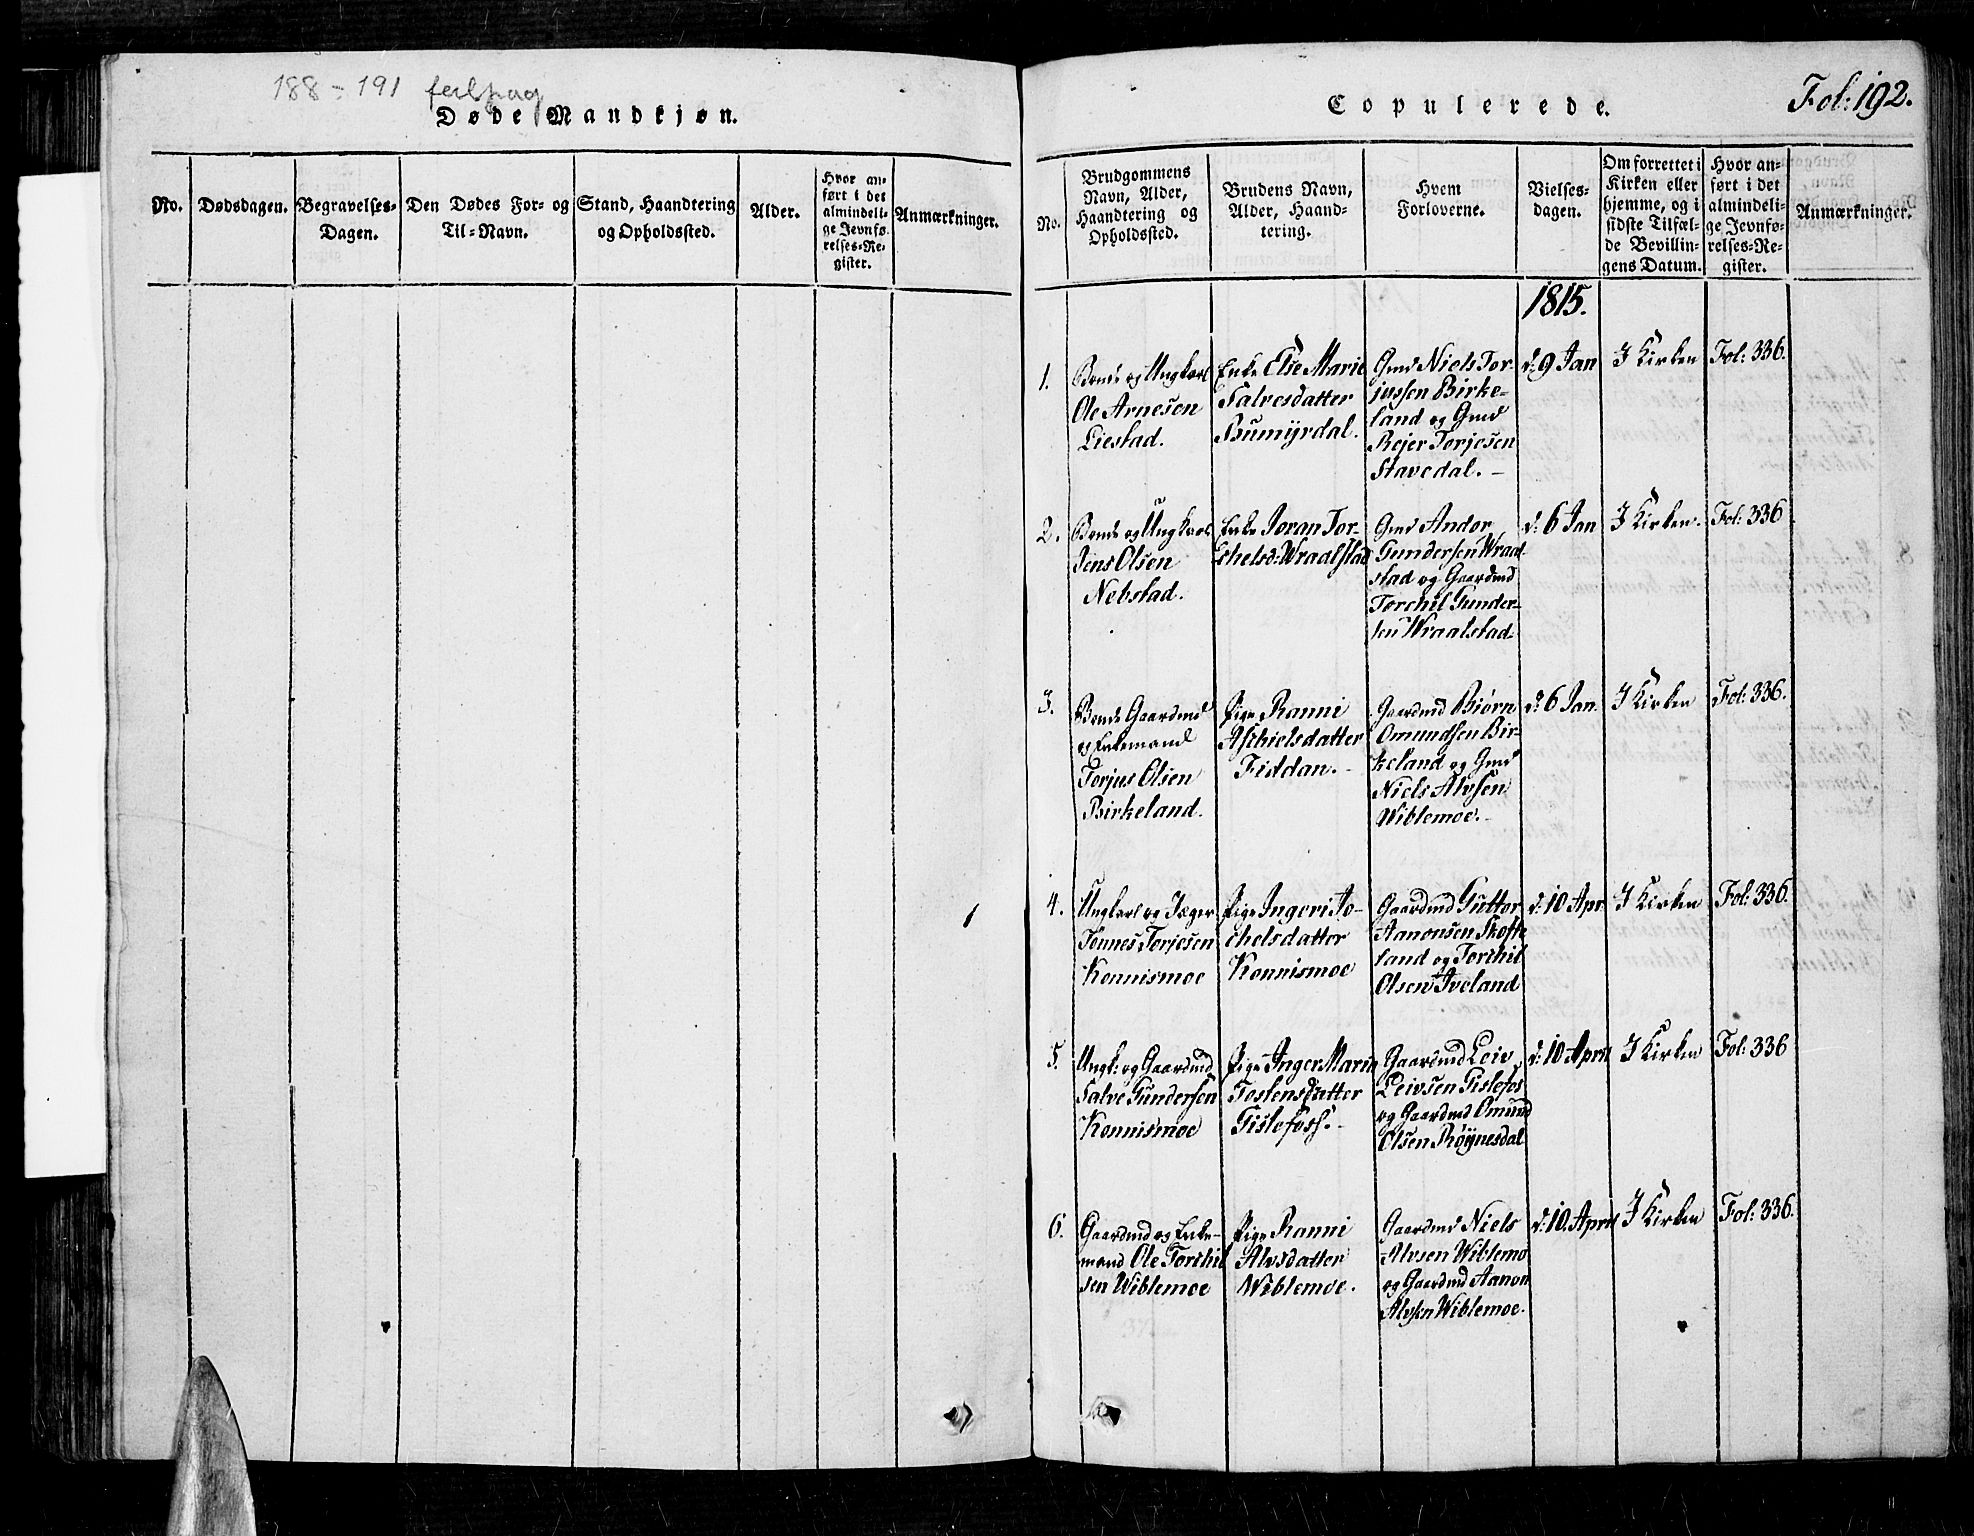 188 - 191 feilpag
Døde Mandkjøn.
No.
Dødsdagen.
Begravelses-
Dagen.
Den Dødes For- og
Til-Navn.
Stand, Haandtering
og Opholdssted.
Alder.
Hvor an-
ført i det
almindeli-
ge Jevnfø-
relses-Re-
gister.
Anmærkninger.
Copulerede.
Fol: 192.
No.
Brudgommens
Navn, Alder,
Haandtering og
Opholdssted.
Brudens Navn,
Alder, Haand-
tering.
Hvem
Forloverne.
Vielses-
dagen.
Om forrettet i
Kirken eller
hjemme, og i
sidste Tilfæl-
de Bevillin-
gens Datum.
Hvor an-
ført i det
almindeli-
ge Jevnfø-
relses-Re-
gister.
Anmærkninger.
1815.
1.
Bonde og Ungkarl
Ole Arnesen
Liestad.
Enke Else Marie
Salvesdatter
Bumÿrdal.
Gmd Niels Tor-
jussen Birke-
land og Gmd
Rejer Torjesen
Stavedal. -
d: 9 Jan
I Kirken
Fol: 336.
2.
Bonde og Ungkarl
Jens Olsen
Nebstad.
Enke Joran Tor-
chelsd: Wraalstad
Gmd Andor
Gundersen Wraal
stad og Gaardmd
Torchil Gunder-
sen Wraalstad.
d: 6 Jan
I Kirken.
Fol: 336
3.
Bonde Gaardmd
og Enkemand
Torjus Olsen
Birkeland.
Pige Ranni
Aschielsdatter
Fiddan. -
Gaardmd Biørn
Omundsen Bir-
keland og Gmd
Niels Alvsen
Wiblemoe. -
d: 6 Jan.
I Kirken
Fol: 336.
4.
Ungkarl og Jæger
Tønnes Torjesen
Konnismoe
Pige Ingeri Jo-
chelsdatter
Konnismoe
Gaardmd Guttor
Aanonsen Skofte
land og Torchil
Olsen Iveland
d: 10 Apr
I Kirken
Fol: 336.
5.
Ungk: og Gaardmd
Salve Gundersen
Konnismoe
Pige Inger Maria
Tostensdatter
Gislefoss. -
Gaardmd Leiv
Leivsen Gislefos
og Gaardmd Omund
Olsen Røÿnesdal
d: 10 April
I Kirken
Fol: 336
6.
Gaardmd og Enke-
mand Ole Torchil
sen Wiblemoe
Pige Ranni
Alvsdatter
Wiblemoe.
Gaardmd Niels
Alvsen Wiblemo
og Gaardmd Aanon
Alvsen Wiblemoe.
d: 10. April
I Kirken
Fol: 336.